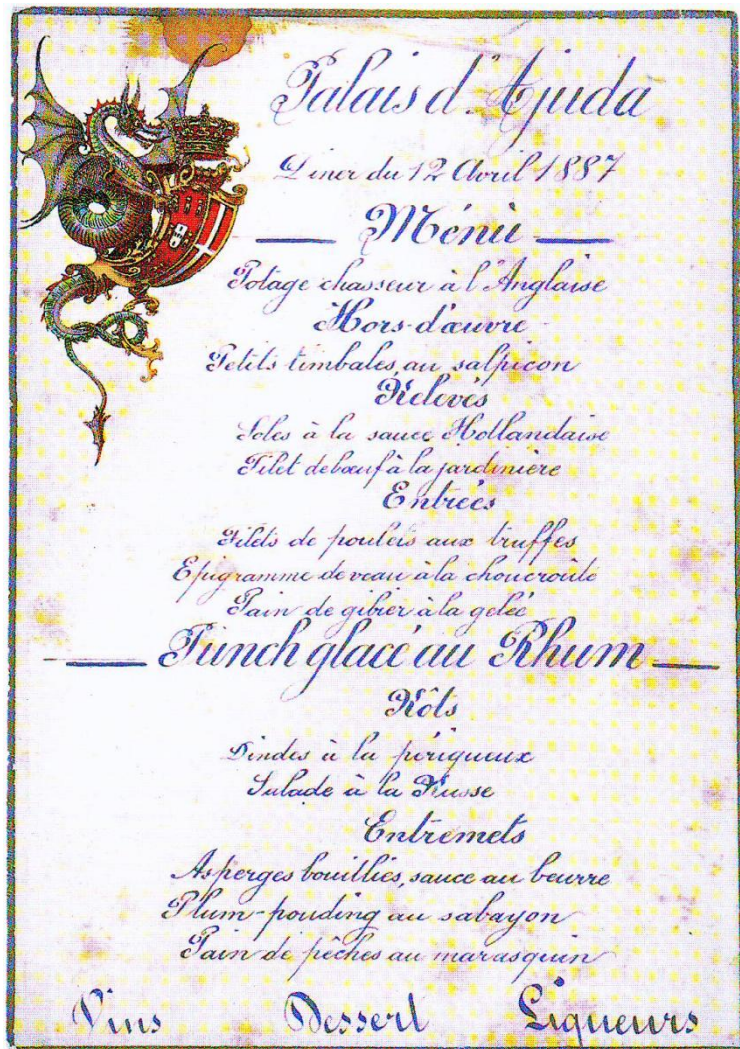 Palais d'Ajuda
Diner du 12 Avril 1887
Ménu
Potage chasseur à l'Anglaise
Hors-d'œuvre
Petits timbales au salpicon
Relevés
Soles à la sauce Hollandaise
Filet de bœuf à la jardinière
Entrées
Filets de poulets aux truffes
Epigramme de veau à la choucroûte
Pain de gibier à la gelée
Punch glacé au Rhum
Rôts
Dindes à la périgueux
Salade à la Russe
Entremets
Asperges bouillies, sauce au beurre
Plum-pouding au sabayon
Pain de pêches au marasquin
Vins Dessert Liqueurs